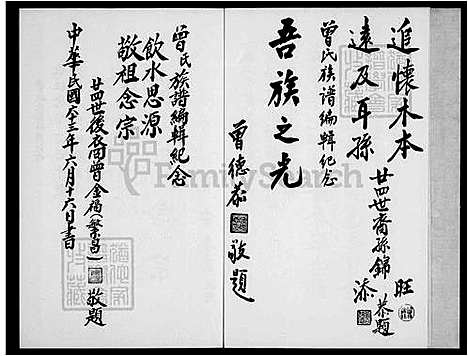 追懷木本
遠及耳孫
廿四世裔孫錦
旺
添
恭題
曾氏族譜編輯紀念
吾族之光
曾德
敬題
曾氏族譜編輯紀念
飲水思源
敬祖念宗
廿四世後裔曾金福(繁昌)
敬題
中華民國六十三年六月十六日書
FamilySearch